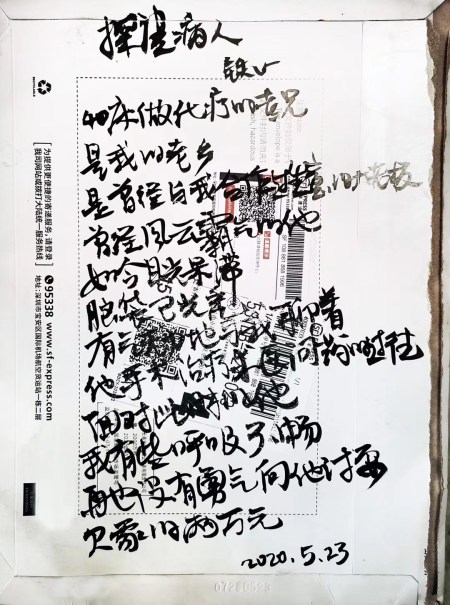 探望病人
40床做化疗的老兄
是我的老乡
是曾经与我合作过生意的老板
曾经风云霸气的他
如今目光呆滞
脑袋已光
有 地与我聊着
他 治疗 问药的过程
面对此 的他
我有些呼吸不畅
再也没有勇气向他讨要
欠我的两万元
2020.5.23
[为提供更便捷的寄递服务,请登录
我司网站或拨打大陆统一服务热线]
95338 www.sf-express.com
地址:深圳市宝安区国际机场航空货运站一栋二层